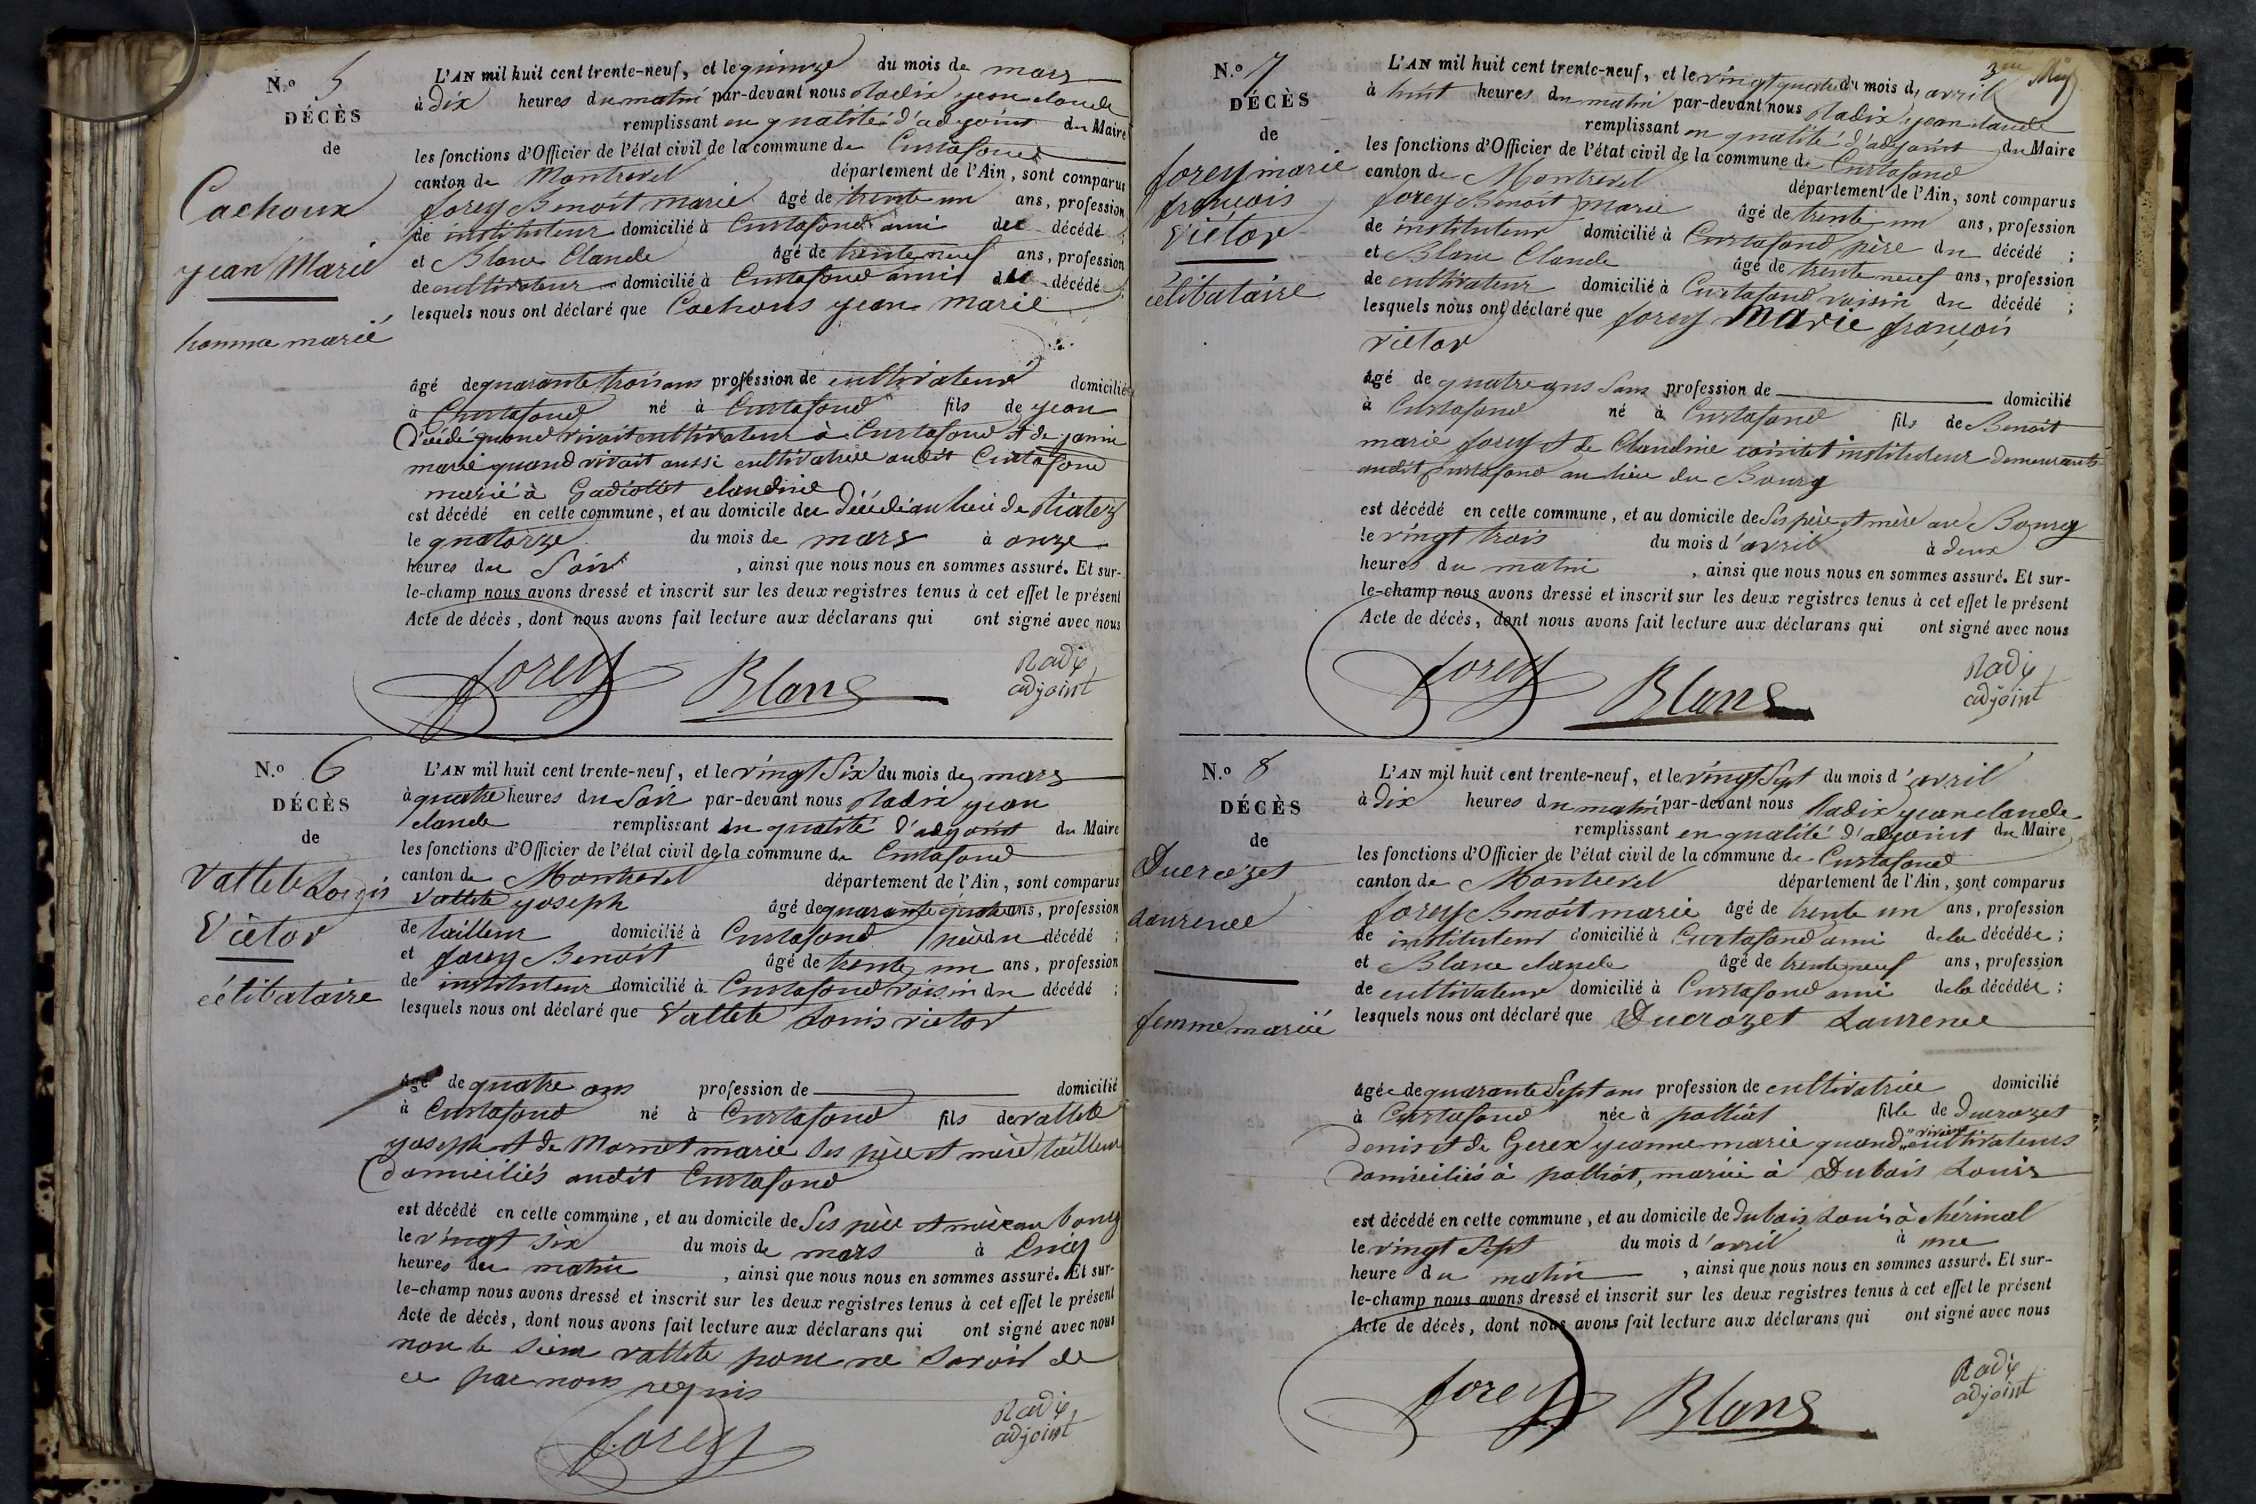 N.o 5
DÉCÈS
de
Cachoux
jean Marie
homme marié
L'AN mil huit cent trente-neuf, et le quinze du mois de mars
à dix heures du matin par-devant nous Radix jean claude
remplissant en qualité d'adjoint du Maire
les fonctions d'Officier de l'état civil de la commune de Curtafond
canton de Montrevel département de l'Ain, sont comparus
forey Benoit marie âgé de trente un ans, profession
de instituteur domicilié à Curtafond ami du décédé ;
et Blanc Claude âgé de trente neuf ans, profession
de cultivateur domicilié à Curtafond ami du décédé ;
lesquels nous ont déclaré que Cachoux jean Marie
âgé de quarante trois ans profession de cultivateur domicilié
à Curtafond né à Curtafond fils de jean
décédé quand vivait cultivateur à Curtafond et de
marie quand vivait aussi cultivatrice audit Curtafond
marié à Gadiollet claudine
est décédé en cette commune, et au domicile du décédé au lieu de
le quatorze du mois de mars à onze
heures du Soir , ainsi que nous nous en sommes assuré. Et sur-
le-champ nous avons dressé et inscrit sur les deux registres tenus à cet effet le présent
Acte de décès, dont nous avons fait lecture aux déclarans qui ont signé avec nous
forey Blanc Radix
adjoint
N.o 6
DÉCÈS
de
Vallete Louis
Victor
célibataire
L'AN mil huit cent trente-neuf, et le vingt Six du mois de mars
à quatre heures du Soir par-devant nous Radix jean
claude remplissant en qualité d'adjoint du Maire
les fonctions d'Officier de l'état civil de la commune de Curtafond
canton de Montrevel département de l'Ain, sont comparus
Vallete joseph âgé de quarante quatre ans, profession
de tailleur domicilié à Curtafond père du décédé ;
et forey Benoit âgé de trente un ans, profession
de instituteur domicilié à Curtafond voisin du décédé ;
lesquels nous ont déclaré que Vallete Louis victor
âgé de quatre ans profession de domicilié
à Curtafond né à Curtafond fils de vallete
joseph et de marie ses père et mère tailleur
domiciliés audit Curtafond
est décédé en cette commune, et au domicile de Ses père et mère au bourg
le vingt six du mois de mars à Cinq
heures du matin , ainsi que nous nous en sommes assuré. Et sur-
le-champ nous avons dressé et inscrit sur les deux registres tenus à cet effet le présent
Acte de décès, dont nous avons fait lecture aux déclarans qui ont signé avec nous
non le Sieur vallete pour ne Savoir de
ce par nous requis
forey Radix
adjoint
N.o 7
DÉCÈS
de
forey marie
françois
victor
célibataire
L'AN mil huit cent trente-neuf, et le vingt quatre du mois d'avril
à huit heures du matin par-devant nous Radix jean claude
remplissant en qualité d'adjoint du Maire
les fonctions d'Officier de l'état civil de la commune de Curtafond
canton de Montrevel département de l'Ain, sont comparus
forey Benoit Marie âgé de trente un ans, profession
de instituteur domicilié à Curtafond père du décédé ;
et Blanc Claude âgé de trente neuf ans, profession
de cultivateur domicilié à Curtafond voisin du décédé ;
lesquels nous ont déclaré que forey Marie françois
victor
âgé de quatre ans Sans profession de domicilié
à Curtafond né à Curtafond fils de Benoit
marie forey et de Claudine instituteur demeurants
audit Curtafond au lieu du Bourg
est décédé en cette commune, et au domicile de Ses père et mère au Bourg
le vingt trois du mois d'avril à deux
heures du matin , ainsi que nous nous en sommes assuré. Et sur-
le-champ nous avons dressé et inscrit sur les deux registres tenus à cet effet le présent
Acte de décès, dont nous avons fait lecture aux déclarans qui ont signé avec nous
forey Blanc Radix
adjoint
N.o 8
DÉCÈS
de
Ducrozet
Laurence
femme mariée
L'AN mil huit cent trente-neuf, et le vingt Sept du mois d'avril
à dix heures du matin par-devant nous Radix jean claude
remplissant en qualité d'adjoint du Maire
les fonctions d'Officier de l'état civil de la commune de Curtafond
canton de Montrevel département de l'Ain, sont comparus
forey Benoit marie âgé de trente un ans, profession
de instituteur domicilié à Curtafond ami de la décédée ;
et Blanc claude âgé de trente neuf ans, profession
de cultivateur domicilié à Curtafond ami de la décédée ;
lesquels nous ont déclaré que Ducrozet Laurence
âgée de quarante Sept ans profession de cultivatrice domicilié
à Curtafond née à polliat fille de Ducrozet
denis et de Gerex jeanne marie quand vivaient cultivateurs
domiciliés à polliat, mariée à Dubois Louis
est décédé en cette commune, et au domicile de dubois Louis à chérinal
le vingt Sept du mois d'avril à une
heure du matin , ainsi que nous nous en sommes assuré. Et sur-
le-champ nous avons dressé et inscrit sur les deux registres tenus à cet effet le présent
Acte de décès, dont nous avons fait lecture aux déclarans qui ont signé avec nous
forey Blanc Radix
adjoint